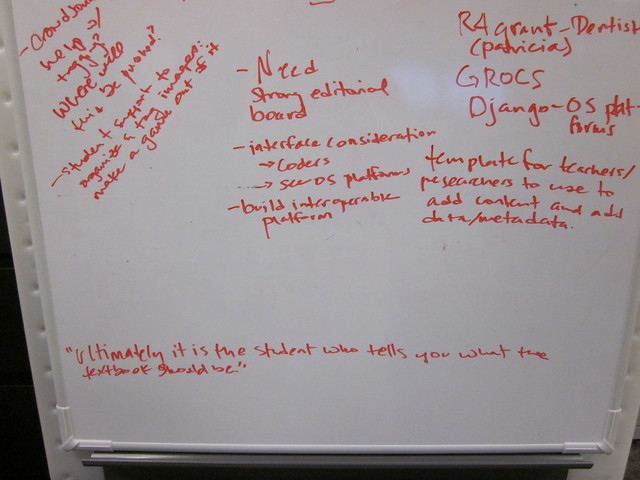 help w/
tagging?
Where will
this be pushed?
- Student support to
organize & tag images:
make a game out of it
- Need
strong editorial
board
- interface consideration
→ coders
→ see OS platforms
- build interoperable
platform
RA grant - Dentist
(patricia)
GROCS
Django - OS plat-
forms
template for teachers/
researchers to use to
add content and add
data/metadata.
"Ultimately it is the student who tells you what the
textbook should be"